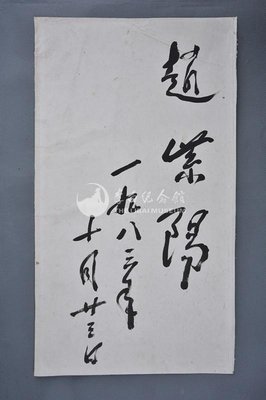 趙紫陽
一九八三年
十月廿三日
纪念館